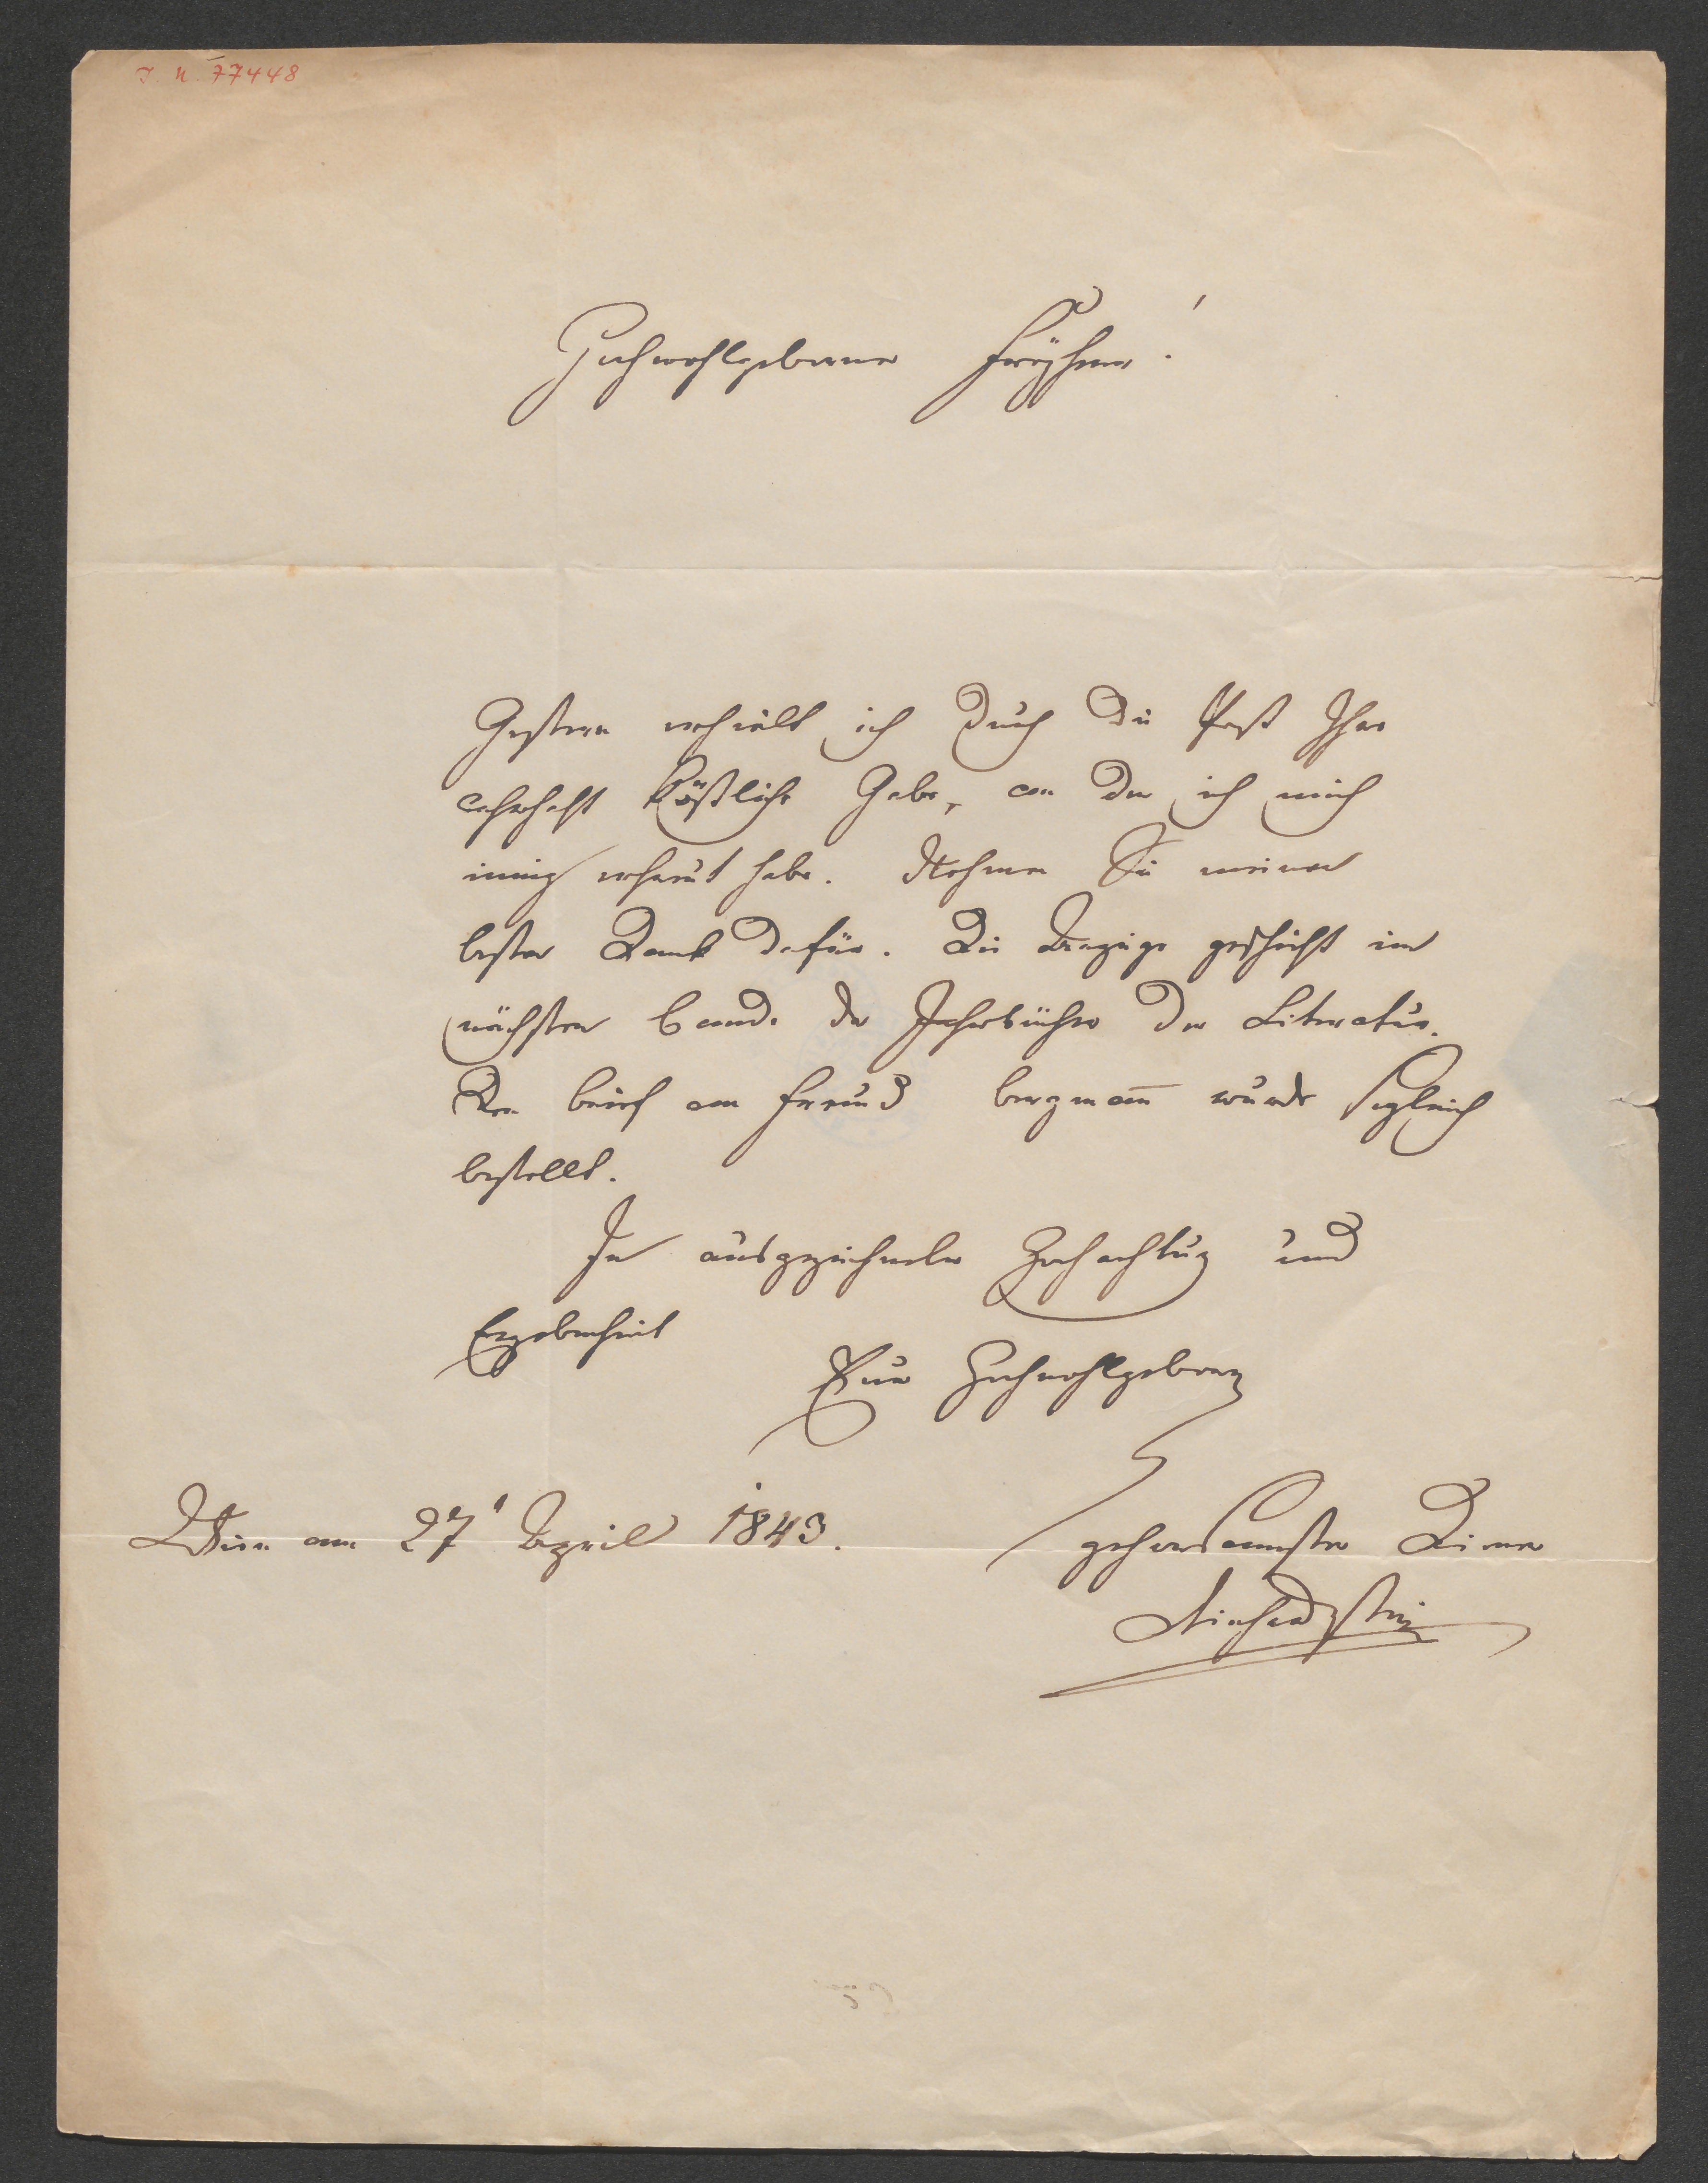 I. N. 77448
Hochwohlgeborner Freyherr!
Gestern erhielt ich durch die Post Ihre
wahrhaft köstliche Gabe, an der ich mich
innig erfreut habe. Nehmen Sie meinen
besten Dank dafür. Die Anzeige geschieht im
nächsten Bande der Jahrbücher der Literatur.
Der Brief an Freund Bergmañ wurde sogleich
bestellt.
In ausgezeichneter Hochachtung und
Ergebenheit
Euer Hochwohlgeboren
Wien am 27t April 1843.
gehorsamster Diener
Deinhardstein